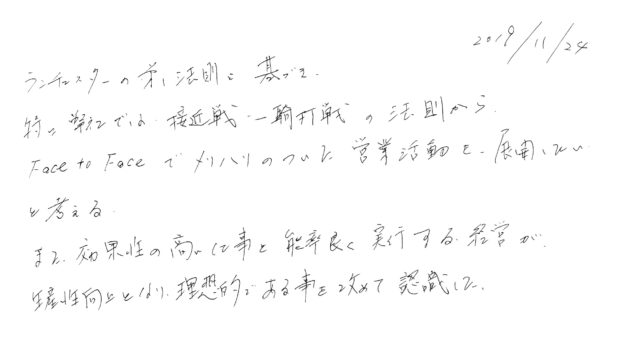 2019/11/24
ランチェスターの第1法則に基づき、
特に弊社である、接近戦・一騎打戦の法則から
Face to Face でメリハリのついた営業活動を、展開したい
と考える。
また、効果性の高い仕事を能率良く実行する経営が、
生産性向上となり、理想的である事を改めて認識した。